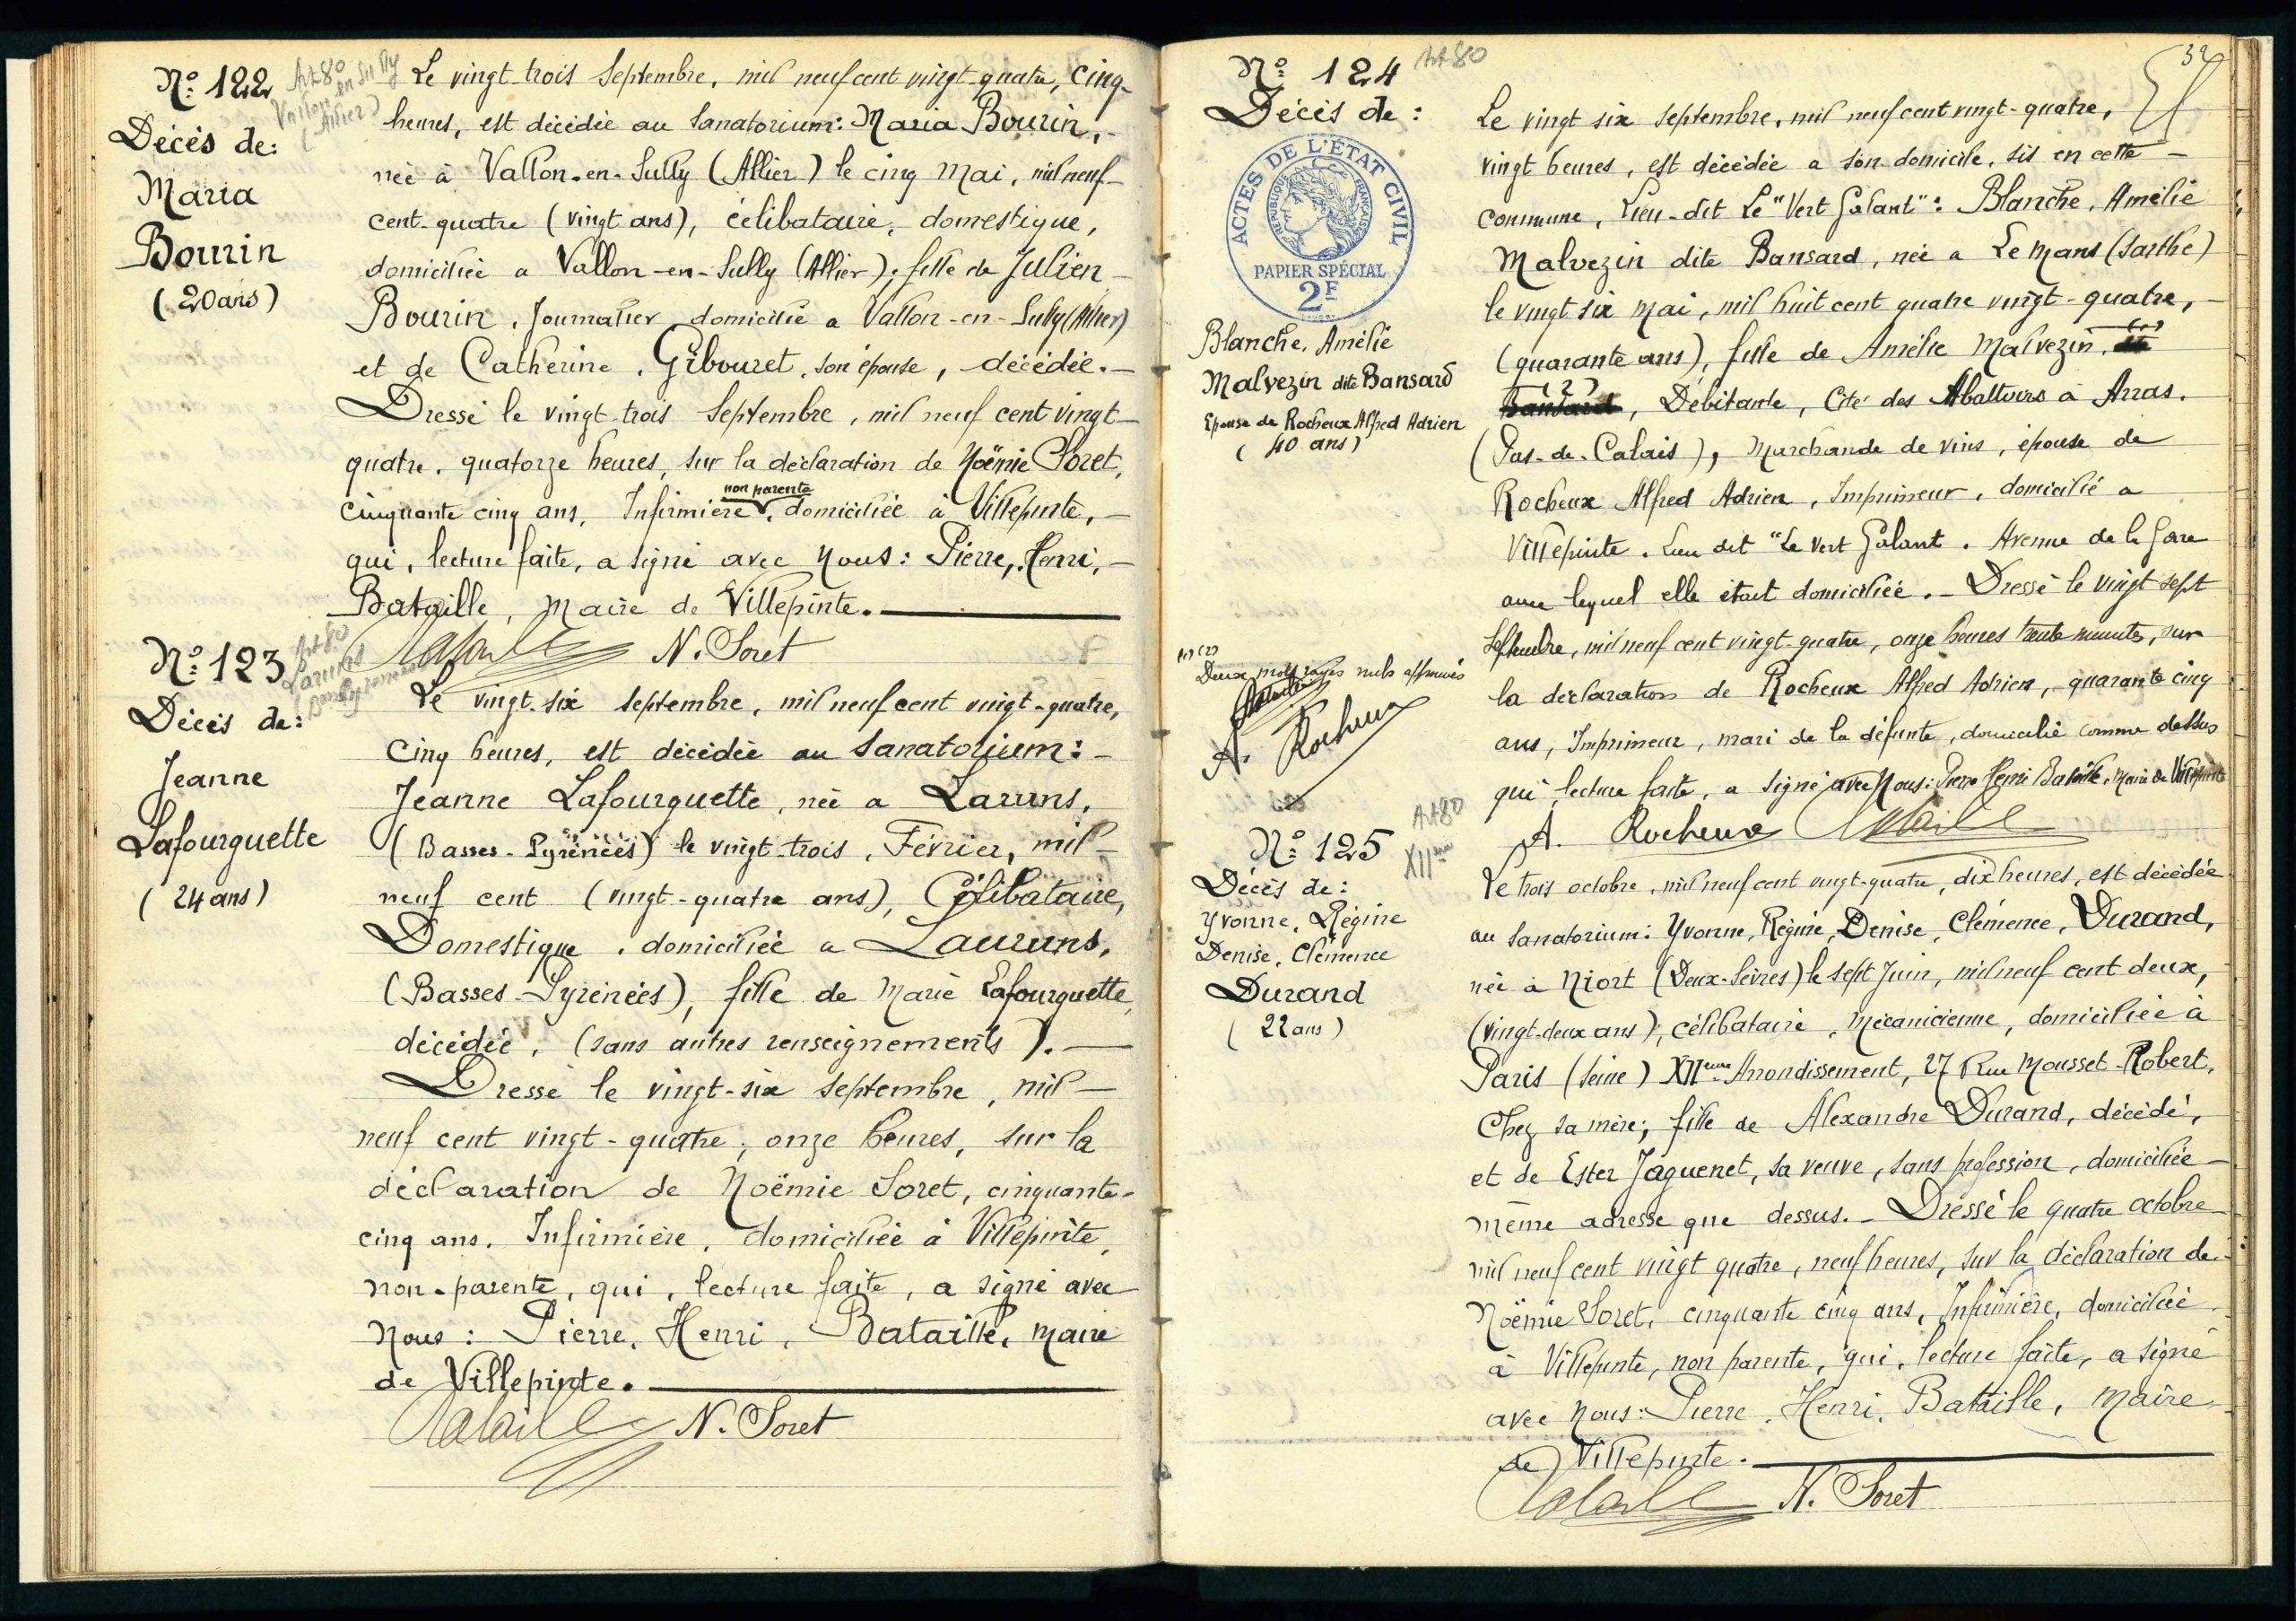 Nº 122
Art 80
Vallon en Sully
(Allier)
Décès de:
Maria
Bourin
(20 ans)
Le vingt-trois Septembre, mil neuf cent vingt-quatre, cinq-
heures, est décédée au Sanatorium: Maria Bourin,-
née à Vallon-en-Sully (Allier) le cinq Mai, mil neuf-
cent-quatre (vingt ans), célibataire, domestique,
domiciliée a Vallon-en-Sully (Allier); fille de Julien-
Bourin, Journalier domicilié a Vallon-en-Sully (Allier)
et de Catherine, Gibouret, son épouse, décédée.-
Dressé le vingt-trois Septembre, mil neuf cent vingt-
quatre, quatorze heures, sur la déclaration de Noëmie Soret,
non parente
cinquante cinq ans, Infirmière, domiciliée à Villepinte,-
qui, lecture faite, a signé avec Nous: Pierre, Henri,-
Bataille, Maire de Villepinte.
Bataille N. Soret
Nº 123
Art 80
Laruns
Basses Pyrénées
Décès de:
Jeanne
Lafourquette
(24 ans)
Le vingt-six septembre, mil neuf cent vingt-quatre,
Cinq heures, est décédée au Sanatorium:-
Jeanne Lafourquette, née a Laruns,
(Basses-Pyrénées) le vingt-trois, Février, mil-
neuf cent (vingt-quatre ans), Célibataire,
Domestique, domiciliée a Lauruns,
(Basses-Pyrénées), fille de Marie Lafourquette,
décédée, (sans autres renseignements).-
Dressé le vingt-six septembre, mil-
neuf cent vingt-quatre, onze heures, sur la
déclaration de Noëmie Soret, cinquante-
cinq ans, Infirmière, domiciliée à Villepinte,
non-parente, qui, lecture faite, a signé avec
Nous: Pierre, Henri, Bataille, Maire
de Villepinte.
Bataille N. Soret
32
Nº 124
Art 80
Décès de:
ACTES DE L'ÉTAT CIVIL
RÉPUBLIQUE FRANÇAISE
PAPIER SPÉCIAL
2F
Blanche, Amélie
Malvezin dite Bansard
Epouse de Rocheux Alfred Adrien
(40 ans)
Le vingt six septembre, mil neuf cent vingt-quatre,
vingt heures, est décédée a son domicile, sis en cette-
commune, Lieu-dit Le "Vert Galant": Blanche, Amélie
Malvezin dite Bansard, née a Le Mans (Sarthe)
le vingt six Mai, mil huit cent quatre vingt-quatre,-
(quarante ans), fille de Amélie Malvezin, (1) dite
(2) Bansard, Débitante, Cité des Abattoirs à Arras,
(Pas-de-Calais), Marchande de vins, épouse de
Rocheux Alfred Adrien, Imprimeur, domicilié a
Villepinte, Lieu dit "Le Vert Galant, Avenue de la Gare
avec lequel elle était domiciliée.- Dressé le vingt sept
Septembre, mil neuf cent vingt-quatre, onze heures trente minutes, sur
la déclaration de Rocheux Alfred Adrien, quarante cinq
ans, Imprimeur, mari de la défunte, domicilié comme dessus
qui lecture faite, a signé avec Nous: Pierre Henri Bataille, Maire de Villepinte
A. Rocheux Bataille
(1) (2)
Deux mots rayés nuls approuvés
Bataille
A. Rocheux
Nº 125
Art 80
XIIème
Décès de:
Yvonne, Régine
Denise, Clémence
Durand
(22 ans)
Le trois octobre, mil neuf cent vingt-quatre, dix heures, est décédée
au Sanatorium: Yvonne, Régine, Denise, Clémence, Durand,
née à Niort (Deux-Sèvres) le sept Juin, mil neuf cent deux,
(vingt-deux ans), célibataire, Mécanicienne, domiciliée à
Paris (Seine) XIIème Arrondissement, 27 Rue Mousset-Robert,
Chez sa mère; fille de Alexandre Durand, décédé,
et de Ester Jaguenet, sa veuve, sans profession, domiciliée-
même adresse que dessus.- Dressé le quatre Octobre
mil neuf cent vingt quatre, neuf heures, sur la déclaration de
Noëmie Soret, cinquante cinq ans, Infirmière, domiciliée
à Villepinte, non parente, qui, lecture faite, a signé
avec Nous: Pierre, Henri, Bataille, Maire
de Villepinte.
Bataille N. Soret